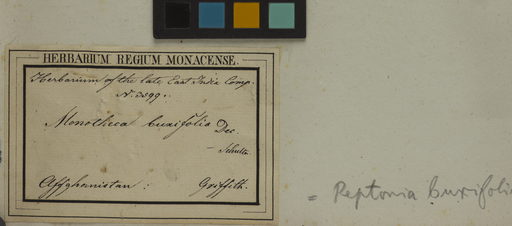 HERBARIUM REGIUM MONACENSE.
Herbarium of the late East India Comp.
N. 3599.
Monotheca buxifolia Dec.
Affghanistan : Griffith.
= Reptonia buxifolia